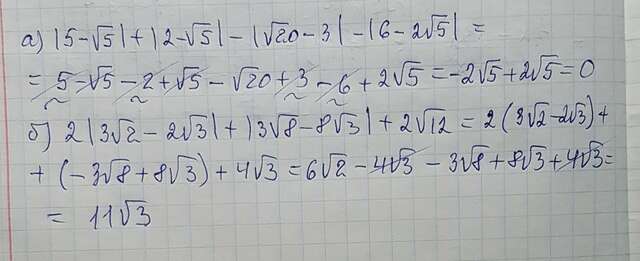 а) |5-√5|+|2-√5|-|√20-3|-|6-2√5| =
= 5-√5-2+√5-√20+3-6+2√5=-2√5+2√5=0
б) 2|3√2-2√3|+|3√8-8√3|+2√12=2(3√2-2√3)+
+(-3√8+8√3)+4√3=6√2-4√3-3√8+8√3+4√3=
= 11√3